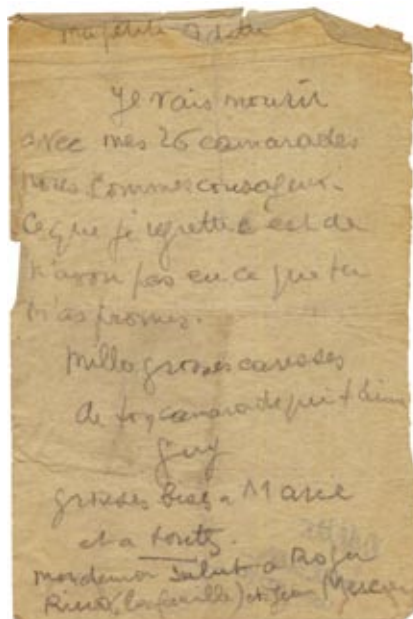 ma petite Odette
Je vais mourir
avec mes 26 camarades
nous sommes courageux.
Ce que je regrette c'est de
n'avoir pas eu ce que tu
m'as promis.
mille grosses caresses
de ton camarade qui t'aime
Guy
grosses bises a Marie
et a toute
mon dernier Salut a Roger
Rino (la famille) et Jean Mercier